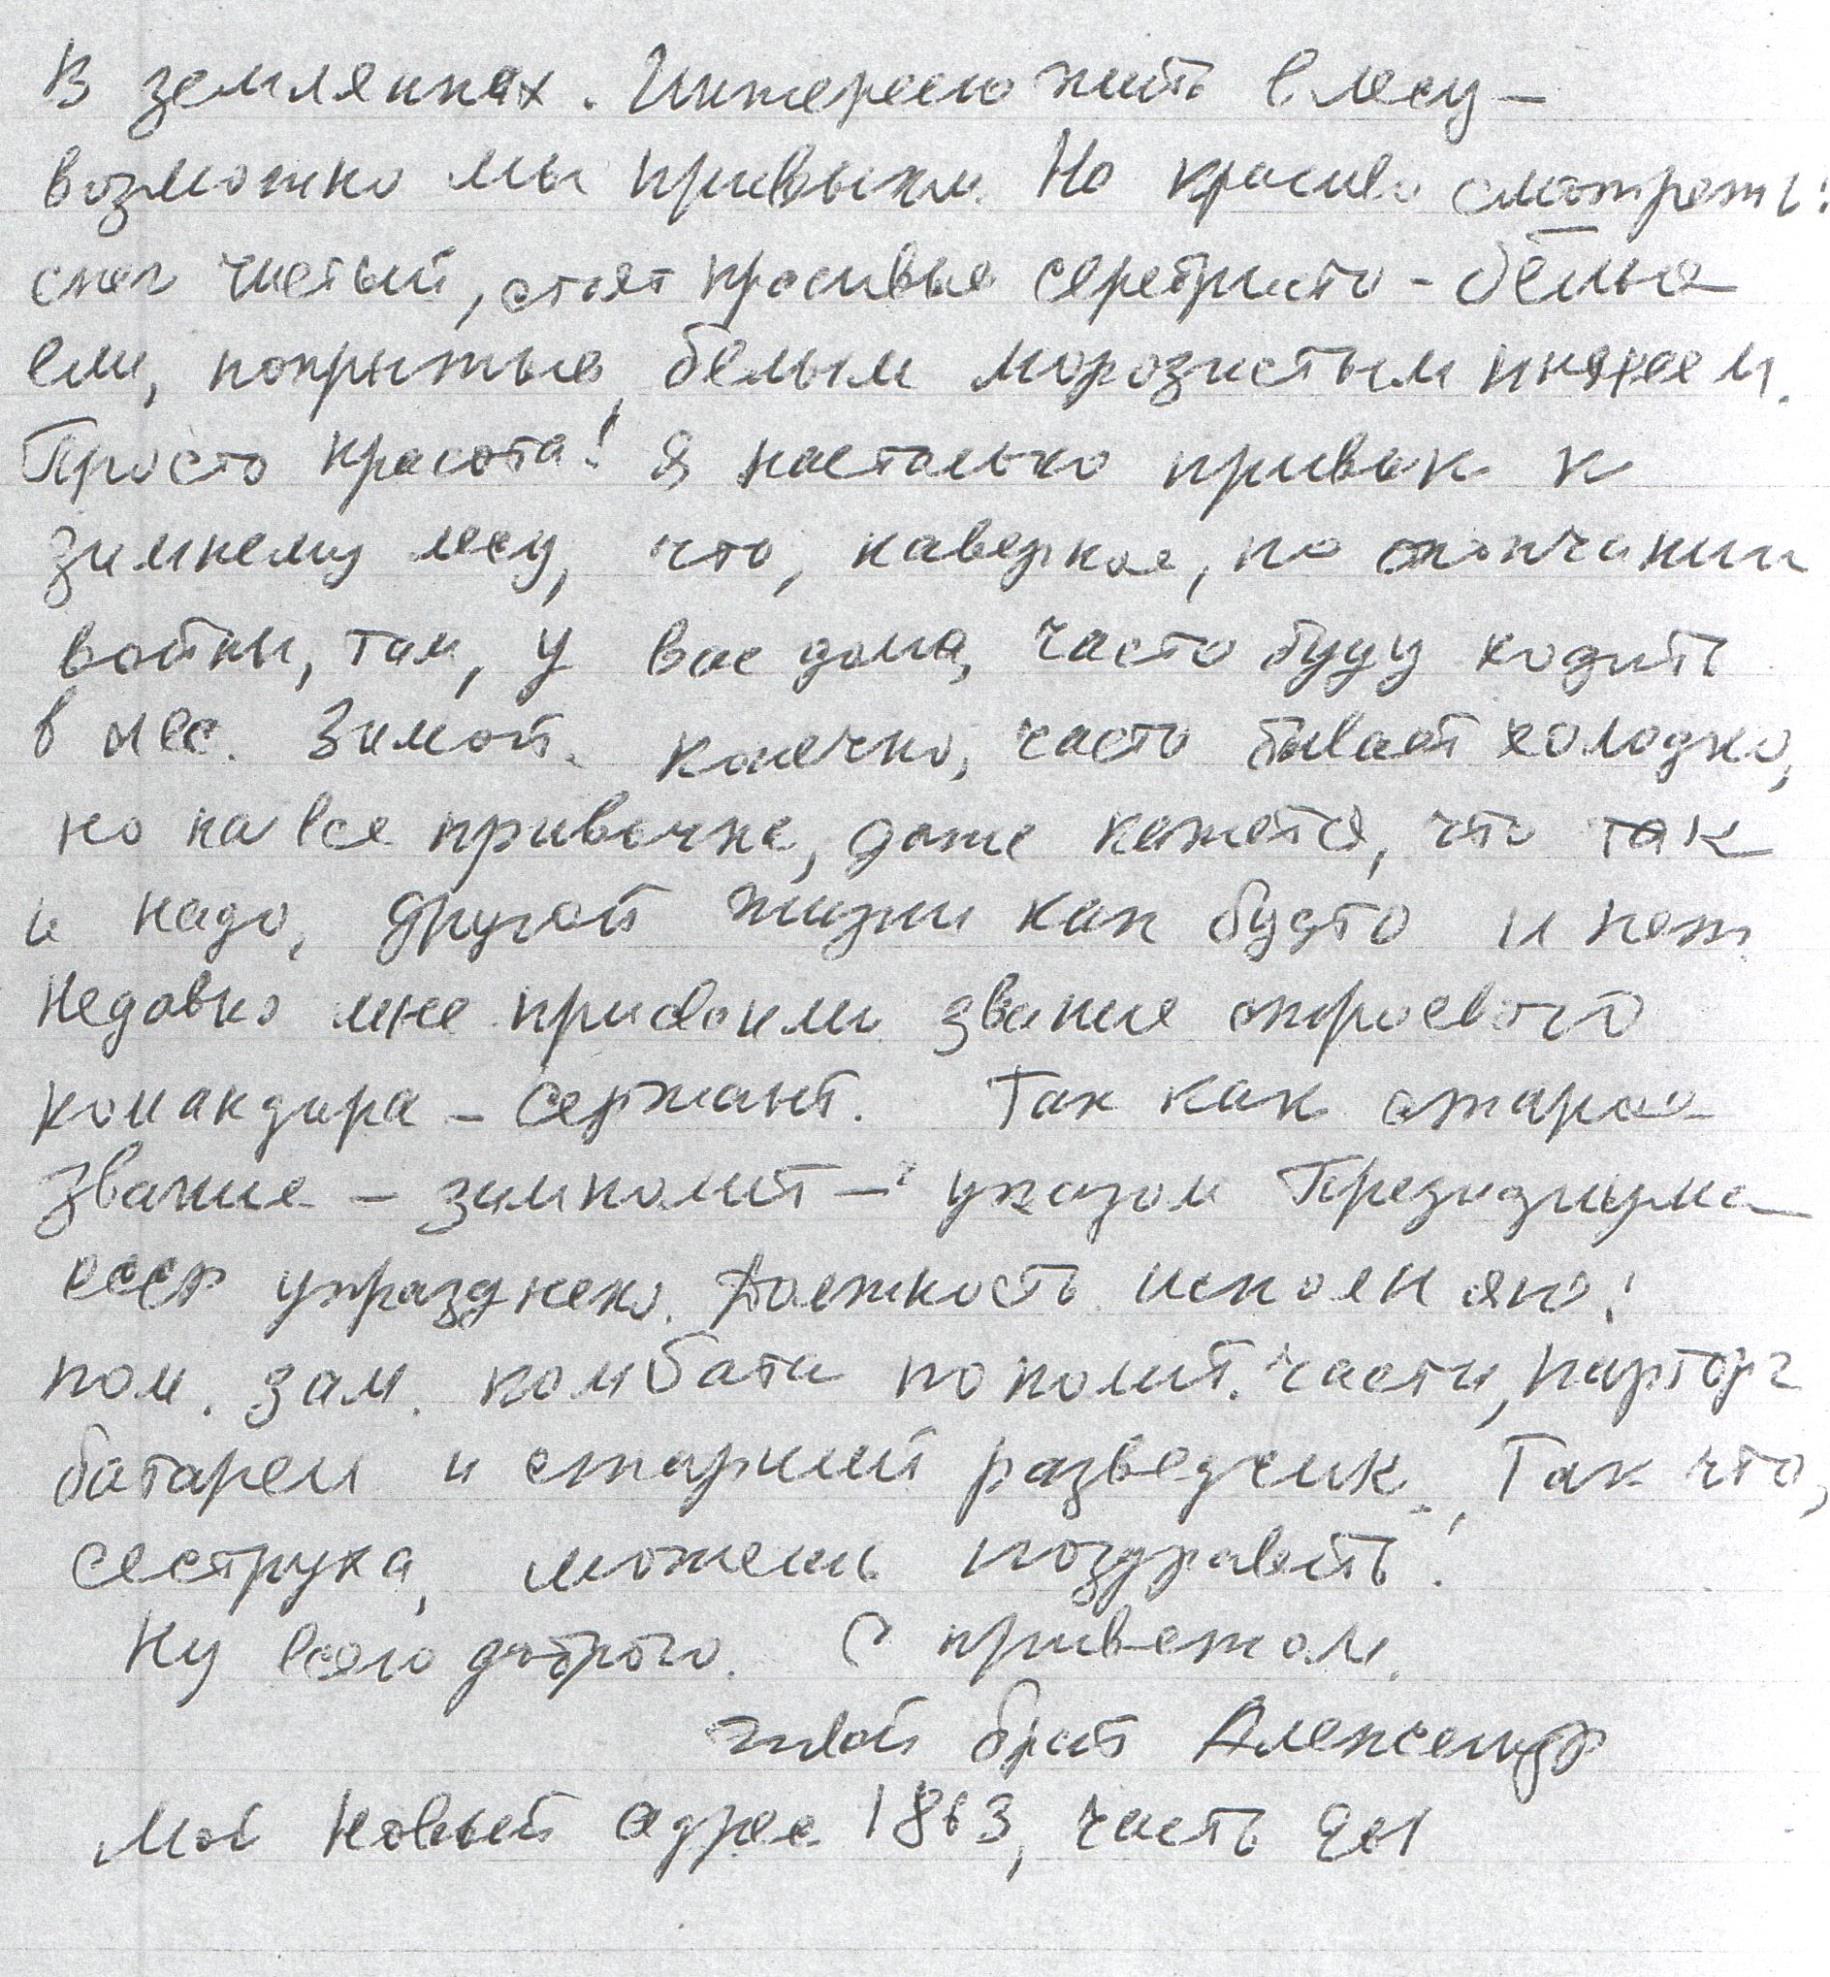 В землянках. Интересно жить в лесу –
возможно мы привыкли. Но красиво смотреть:
снег чистый, стоят красивые серебристо-белые
ели, покрытые белым морозистым инеем.
Просто красота! Я настолько привык к
зимнему лесу, что, наверное, по окончании
войны, там, у вас дома, часто буду ходить
в лес. Зимой. конечно, часто бывает холодно,
но на все привычка, даже кажется, что так
и надо, другой жизни как будто и нет.
Недавно мне присвоили звание строевого
командира – сержант. Так как старое
звание – замполит – указом Президиума
СССР упразднено. Должность исполняю:
пом. зам. комбата по полит. части, парторг
батареи и старший разведчик. Так что,
сеструха, можешь поздравить!
Ну всего доброго. С приветом.
твой брат Александр
Мой новый адрес 1863, часть